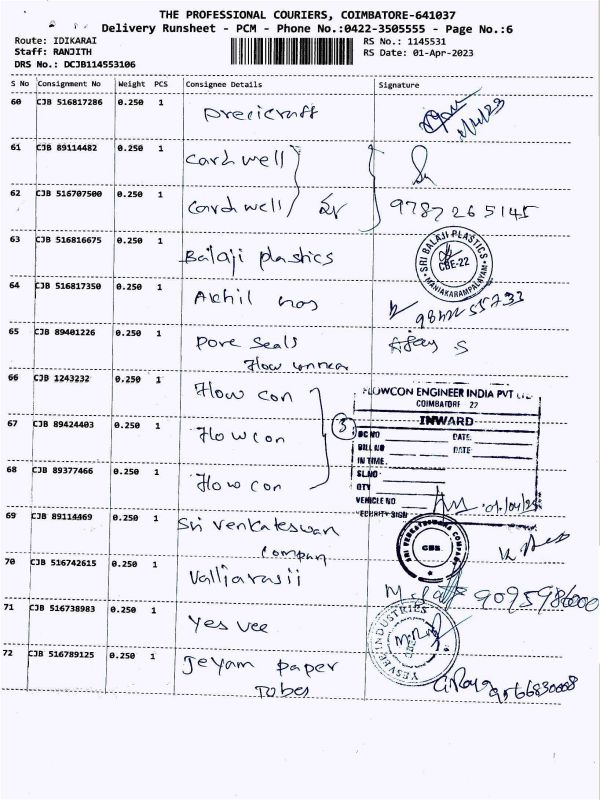 THE PROFESSIONAL COURIERS, COIMBATORE-641037
Delivery Runsheet - PCM - Phone No.:0422-3505555 - Page No.:6
Route: IDIKARAI
RS No.: 1145531
Staff: RANJITH
RS Date: 01-Apr-2023
DRS No.: DCJB114553106
S No Consignment No Weight PCS Consignee Details Signature
60 CJB 516817286 0.250 1 precicraft
61 CJB 89114482 0.250 1 Cardwell
62 CJB 516707500 0.250 1 Cardwell 9787265145
63 CJB 516816675 0.250 1 Balaji plastics
SRI BALAJI PLASTICS
CBE-22
MANIAKARAMPALAYAM
64 CJB 516817350 0.250 1 Akhil
65 CJB 89401226 0.250 1 pore seals Ajay S
Flow
66 CJB 1243232 0.250 1 Flow con
FLOWCON ENGINEER INDIA PVT
COIMBATORE 22
67 CJB 89424403 0.250 1 Flowcon 3
INWARD
DC NO DATE
BILL NO DATE
IN TIME
68 CJB 89377466 0.250 1 Flow con
SL.NO
QTY
VEHICLE NO
SECURITY SIGN
69 CJB 89114469 0.250 1 Sri venkateswan
company
SRI VENKATESWARA COMPANY
CBE
70 CJB 516742615 0.250 1 Valliarasii 9095986000
71 CJB 516738983 0.250 1 Yes vee
YESVEE INDUSTRIES
72 CJB 516789125 0.250 1 Jeyam paper
Tubes 9566830008